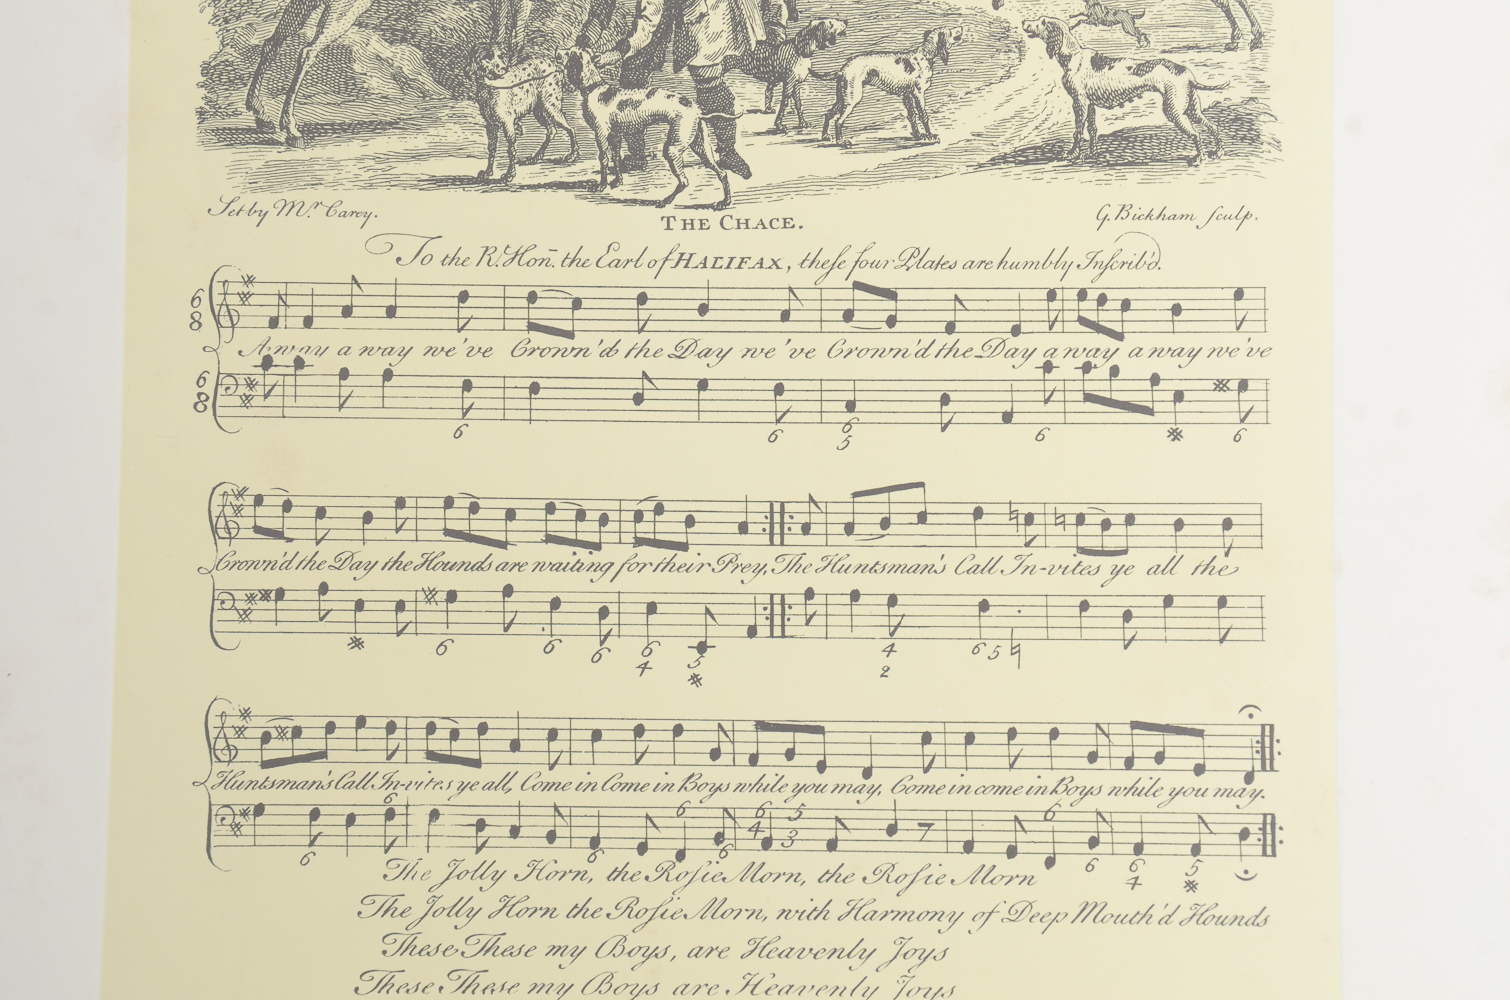 Set by Mr. Carey.
THE CHACE.
G. Bickham sculp.
To the Rt. Hon. the Earl of HALIFAX, these four Plates are humbly Inscrib'd.
6
8
Away away we've Crown'd the Day we've Crown'd the Day away away we've
6
8
6 6 6 6 6
5
Crown'd the Day the Hounds are waiting for their Prey, The Huntsman's Call In-vites ye all the
6 6 6 6 5 4 6 5
4 2
Huntsman's Call In-vites ye all, Come in Come in Boys while you may, Come in come in Boys while you may.
6 6 6 5 6
4 3
6 6 6 6 6 5
4
The Jolly Horn, the Rosie Morn, the Rosie Morn
The Jolly Horn the Rosie Morn, with Harmony of Deep Mouth'd Hounds
These These my Boys, are Heavenly Joys
These These my Boys are Heavenly Joys